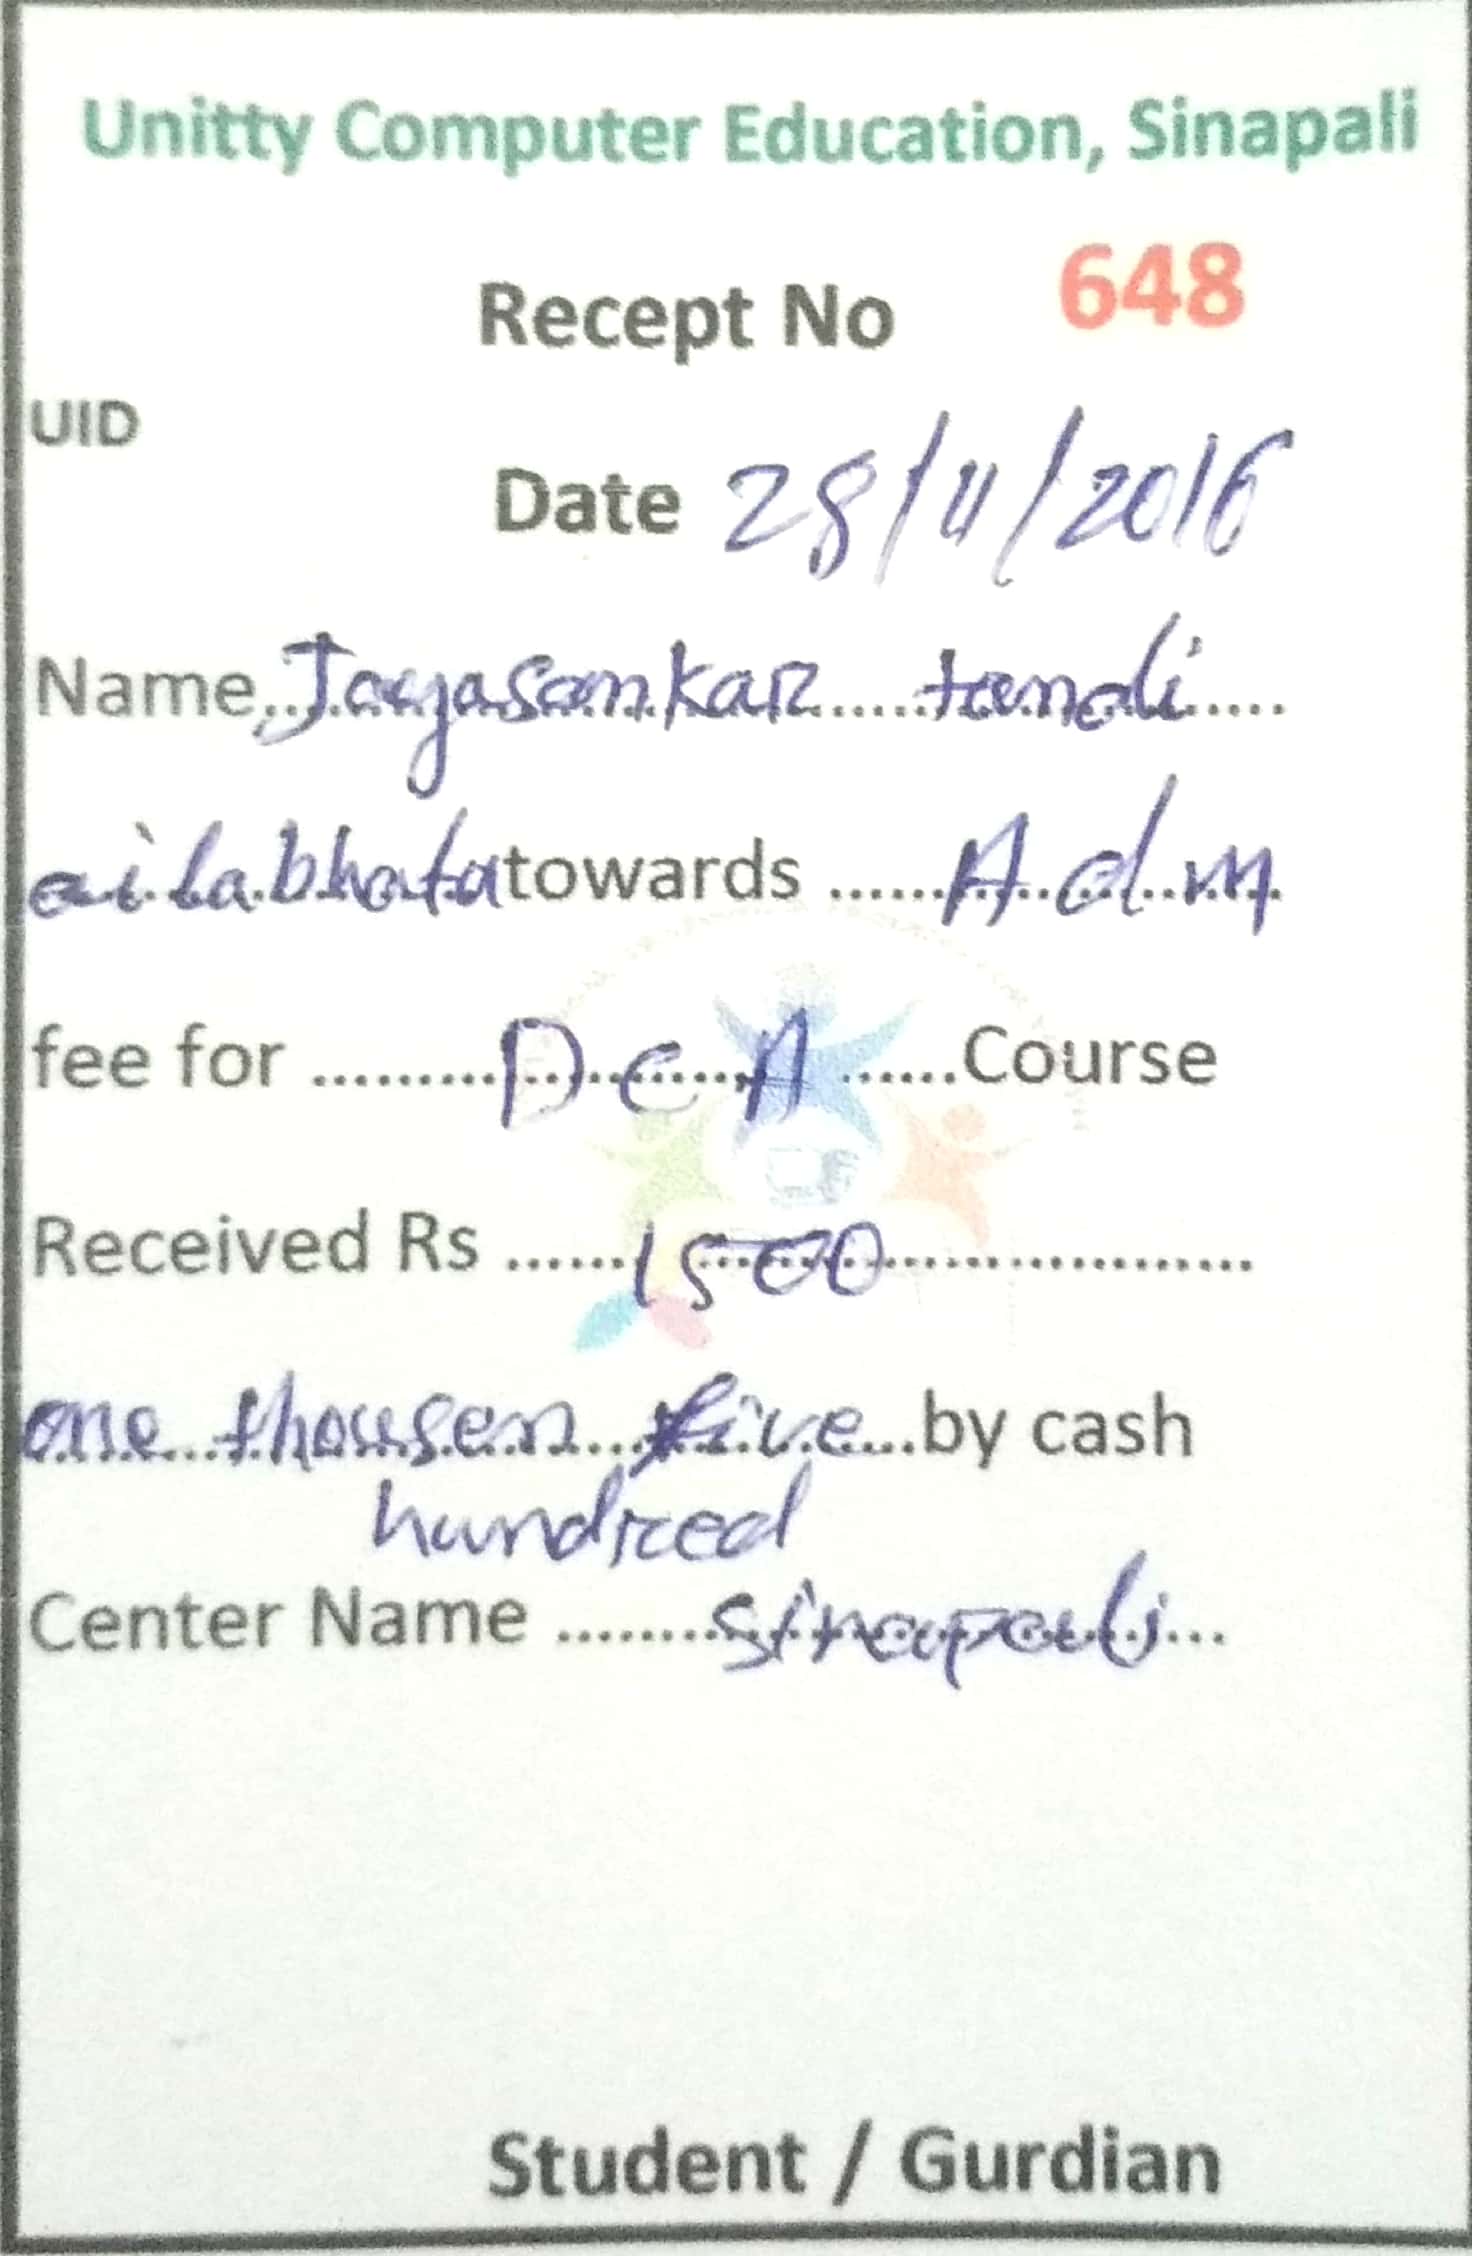 Unitty Computer Education, Sinapali
Recept No 648
UID
Date 28/11/2016
Name, Jayasankar tandi
ailabhata towards ...... Adm
fee for ......... DCA ...... Course
Received Rs ...... 1500 ..................
one thousen five by cash
hundred
Center Name ........ Sinapali ...
Student / Gurdian